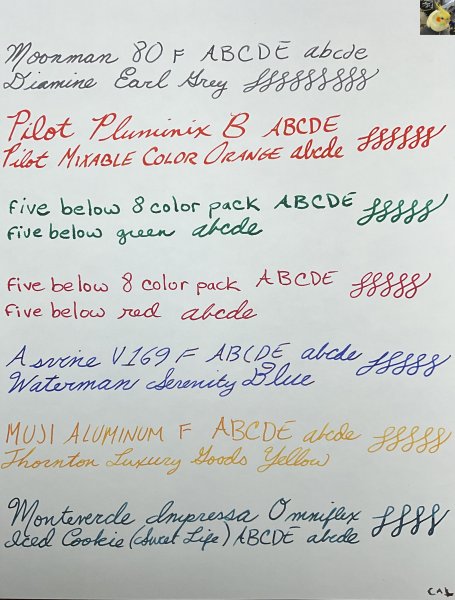 Moonman 80 F ABCDE abcde
Diamine Earl Grey
Pilot Pluminix B ABCDE
Pilot MIXABLE COLOR ORANGE abcde
five below 8 color pack ABCDE
five below green abcde
five below 8 color pack ABCDE
five below red abcde
Asvine V169 F ABCDE abcde
Waterman Serenity Blue
MUJI ALUMINUM F ABCDE abcde
Thornton Luxury Goods Yellow
Monteverde Impressa Omniflex
Iced Cookie (Sweet Life) ABCDE abcde
CAL